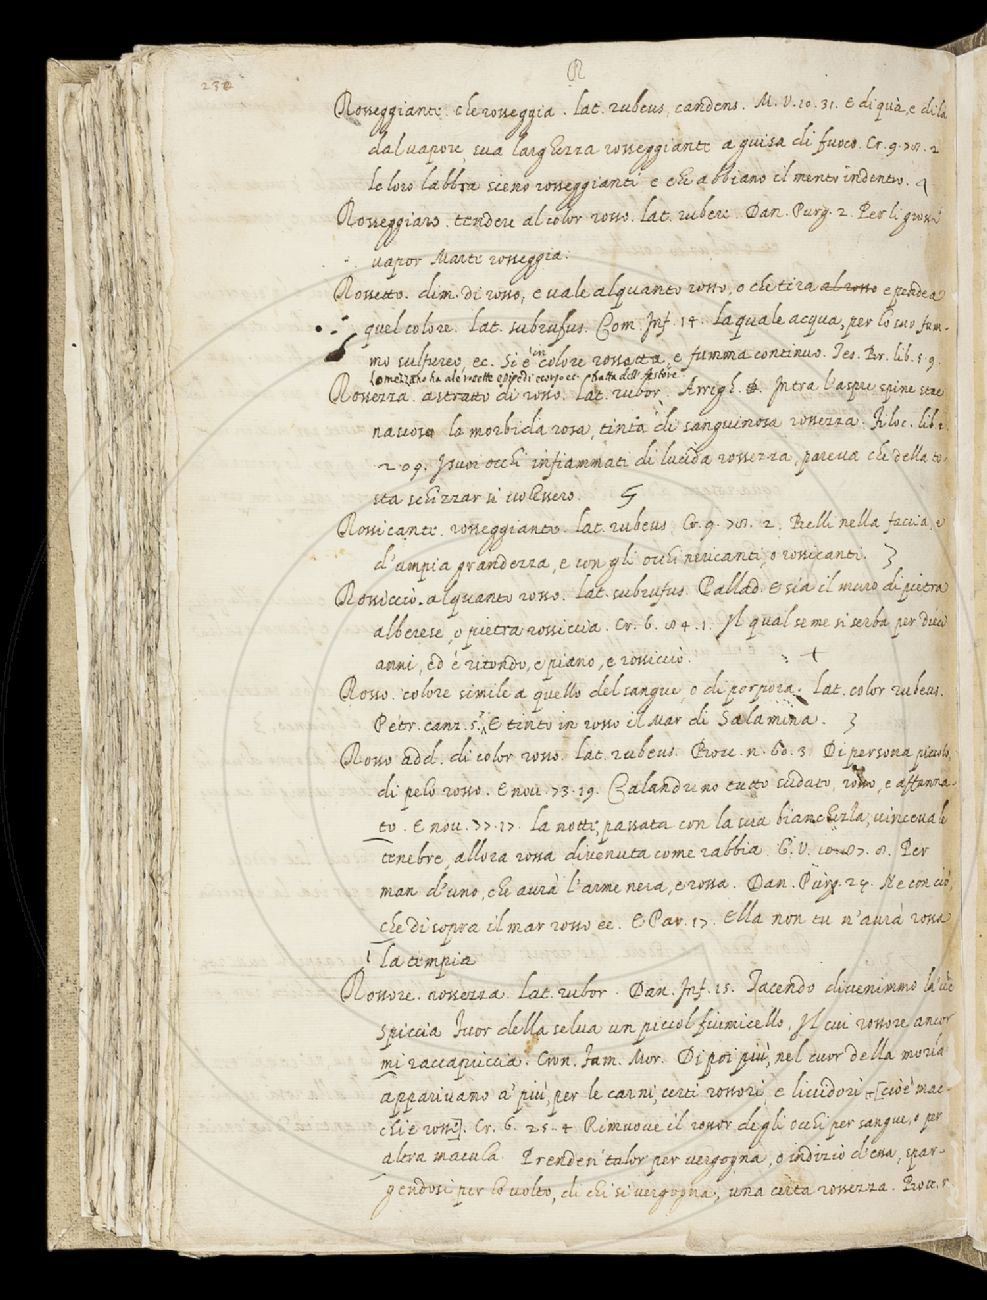 232
R
Rosseggiante. che rosseggia. lat. rubeus, candens. M. V. 10. 31. E di quà, e di là
dal vapore, sua larghezza rosseggiante a guisa di fuoco. Cr. 9. 78. 2
le loro labbra sieno rosseggianti e che abbiano il mento indentro.
Rosseggiare. tendere al color rosso. lat. rubere. Dan. Purg. 2. Per li grossi
vapor Marte rosseggia.
Rossetto. dim. di rosso, e vale alquanto rosso, o che tira al rosso e pende a
quel colore. lat. subrufus. Com. Inf. 14. la quale acqua, per lo suo fum-
mo sulfureo ec. si è in colore rossetta, e fumma continuo. Teo. Br. lib. 5. 9.
lo mezzano ha ale rosette
Rossezza. astratto di rosso. lat. rubor. Arrigh. Intra l'aspre spine stre
nascosa la morbida rosa, tinta di sanguinosa rossezza. Filoc. lib.
209. I suoi occhi infiammati di lucida rossezza, pareva che della te-
sta schizzar si volessero.
Rossicante. rosseggiante. lat. rubeus. Cr. 9. 78. 2. Belli nella faccia, e
d'ampia grandezza, e con gli occhi nericanti, o rossicanti.
Rossiccio. alquanto rosso. lat. subrufus. Pallad. E sia il muro di pietra
alberese, o pietra rossiccia. Cr. 6. 84. 1. Il qual seme si serba per dieci
anni, ed è ritondo, e piano, e rossiccio.
Rosso. colore simile a quello del sangue, o di porpora. lat. color rubeus.
Petr. canz. 5. E tinto in rosso il Mar di Salamina.
Rosso add. di color rosso. lat. rubeus. Bocc. n. 60. 3. Di persona piccolo,
di pelo rosso. E nov. 73. 19. Calandrino tutto sudato, rosso, e affanna-
to. E nov. 77. 17. la notte, passata con la sua bianchezza, vinceva le
tenebre, allora rossa divenuta come rabbia. G. V. 10. 87. 8. Per
man d'uno, che avrà l'arme nera, e rossa. Dan. Purg. 24. Ne con ciò,
che di sopra il mar rosso ee. E Par. 17. Ella non tu n'avrà rossa
la tempia
Rossore. rossezza. lat. rubor. Dan. Inf. 15. Tacendo divenimmo là 've
spiccia fuor della selva un picciol fiumicello, Il cui rossore ancor
mi raccapriccia. Cron. Fam. Mor. Di poi più, nel cuor della moria
apparivano a' più, per le carni, certi rossori, e lividori [cioè mac-
chie rosse]. Cr. 6. 25. 4 Rimuove il rossor degli occhi per sangue, o per
altra macula. Prendesi talor per vergogna, o indizio d'essa, spar-
gendosi per lo volto, di chi si vergogna, una certa rossezza. Bocc.